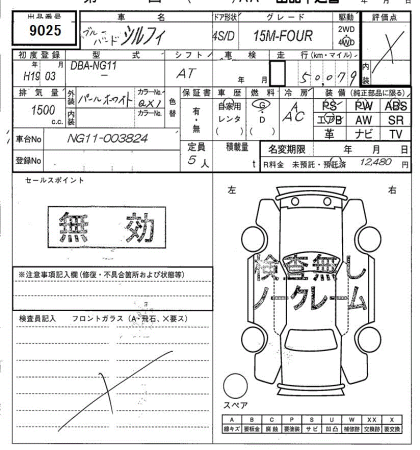 出品番号 車名 ドア形状 グレード 駆動 評価点
9025 ブルーバード シルフィ 4S/D 15M-FOUR 2WD 4WD
初度登録 型式 シフト 車検 走行(km・マイル) 内装
H19年03月 DBA-NG11 - AT 年 月 50079
排気量 外装 パールホワイト カラーNo. QX1 色替 保証書 車歴 燃料 冷房 装備(純正部品に限る)
1500 c.c. 内装 カラーNo. 有・無 自家用 レンタ ( ) G・D ( ) AC PS PW ABS
エアB AW SR
革 ナビ TV
車台No NG11-003824 定員 5人 積載量 t 名変期限 年 月 日
登録No R料金 未預託・預託済 12,480円
セールスポイント 左 右
無効
検査無し
ノークレーム
※注意事項記入欄(修復・不具合箇所および状態等)
検査員記入 フロントガラス(A・飛石、×要ス)
スペア
A B C P S U W XX X
線キズ 要板金 腐蝕 要塗装 サビ 凹凸 補修跡 交換跡 要交換